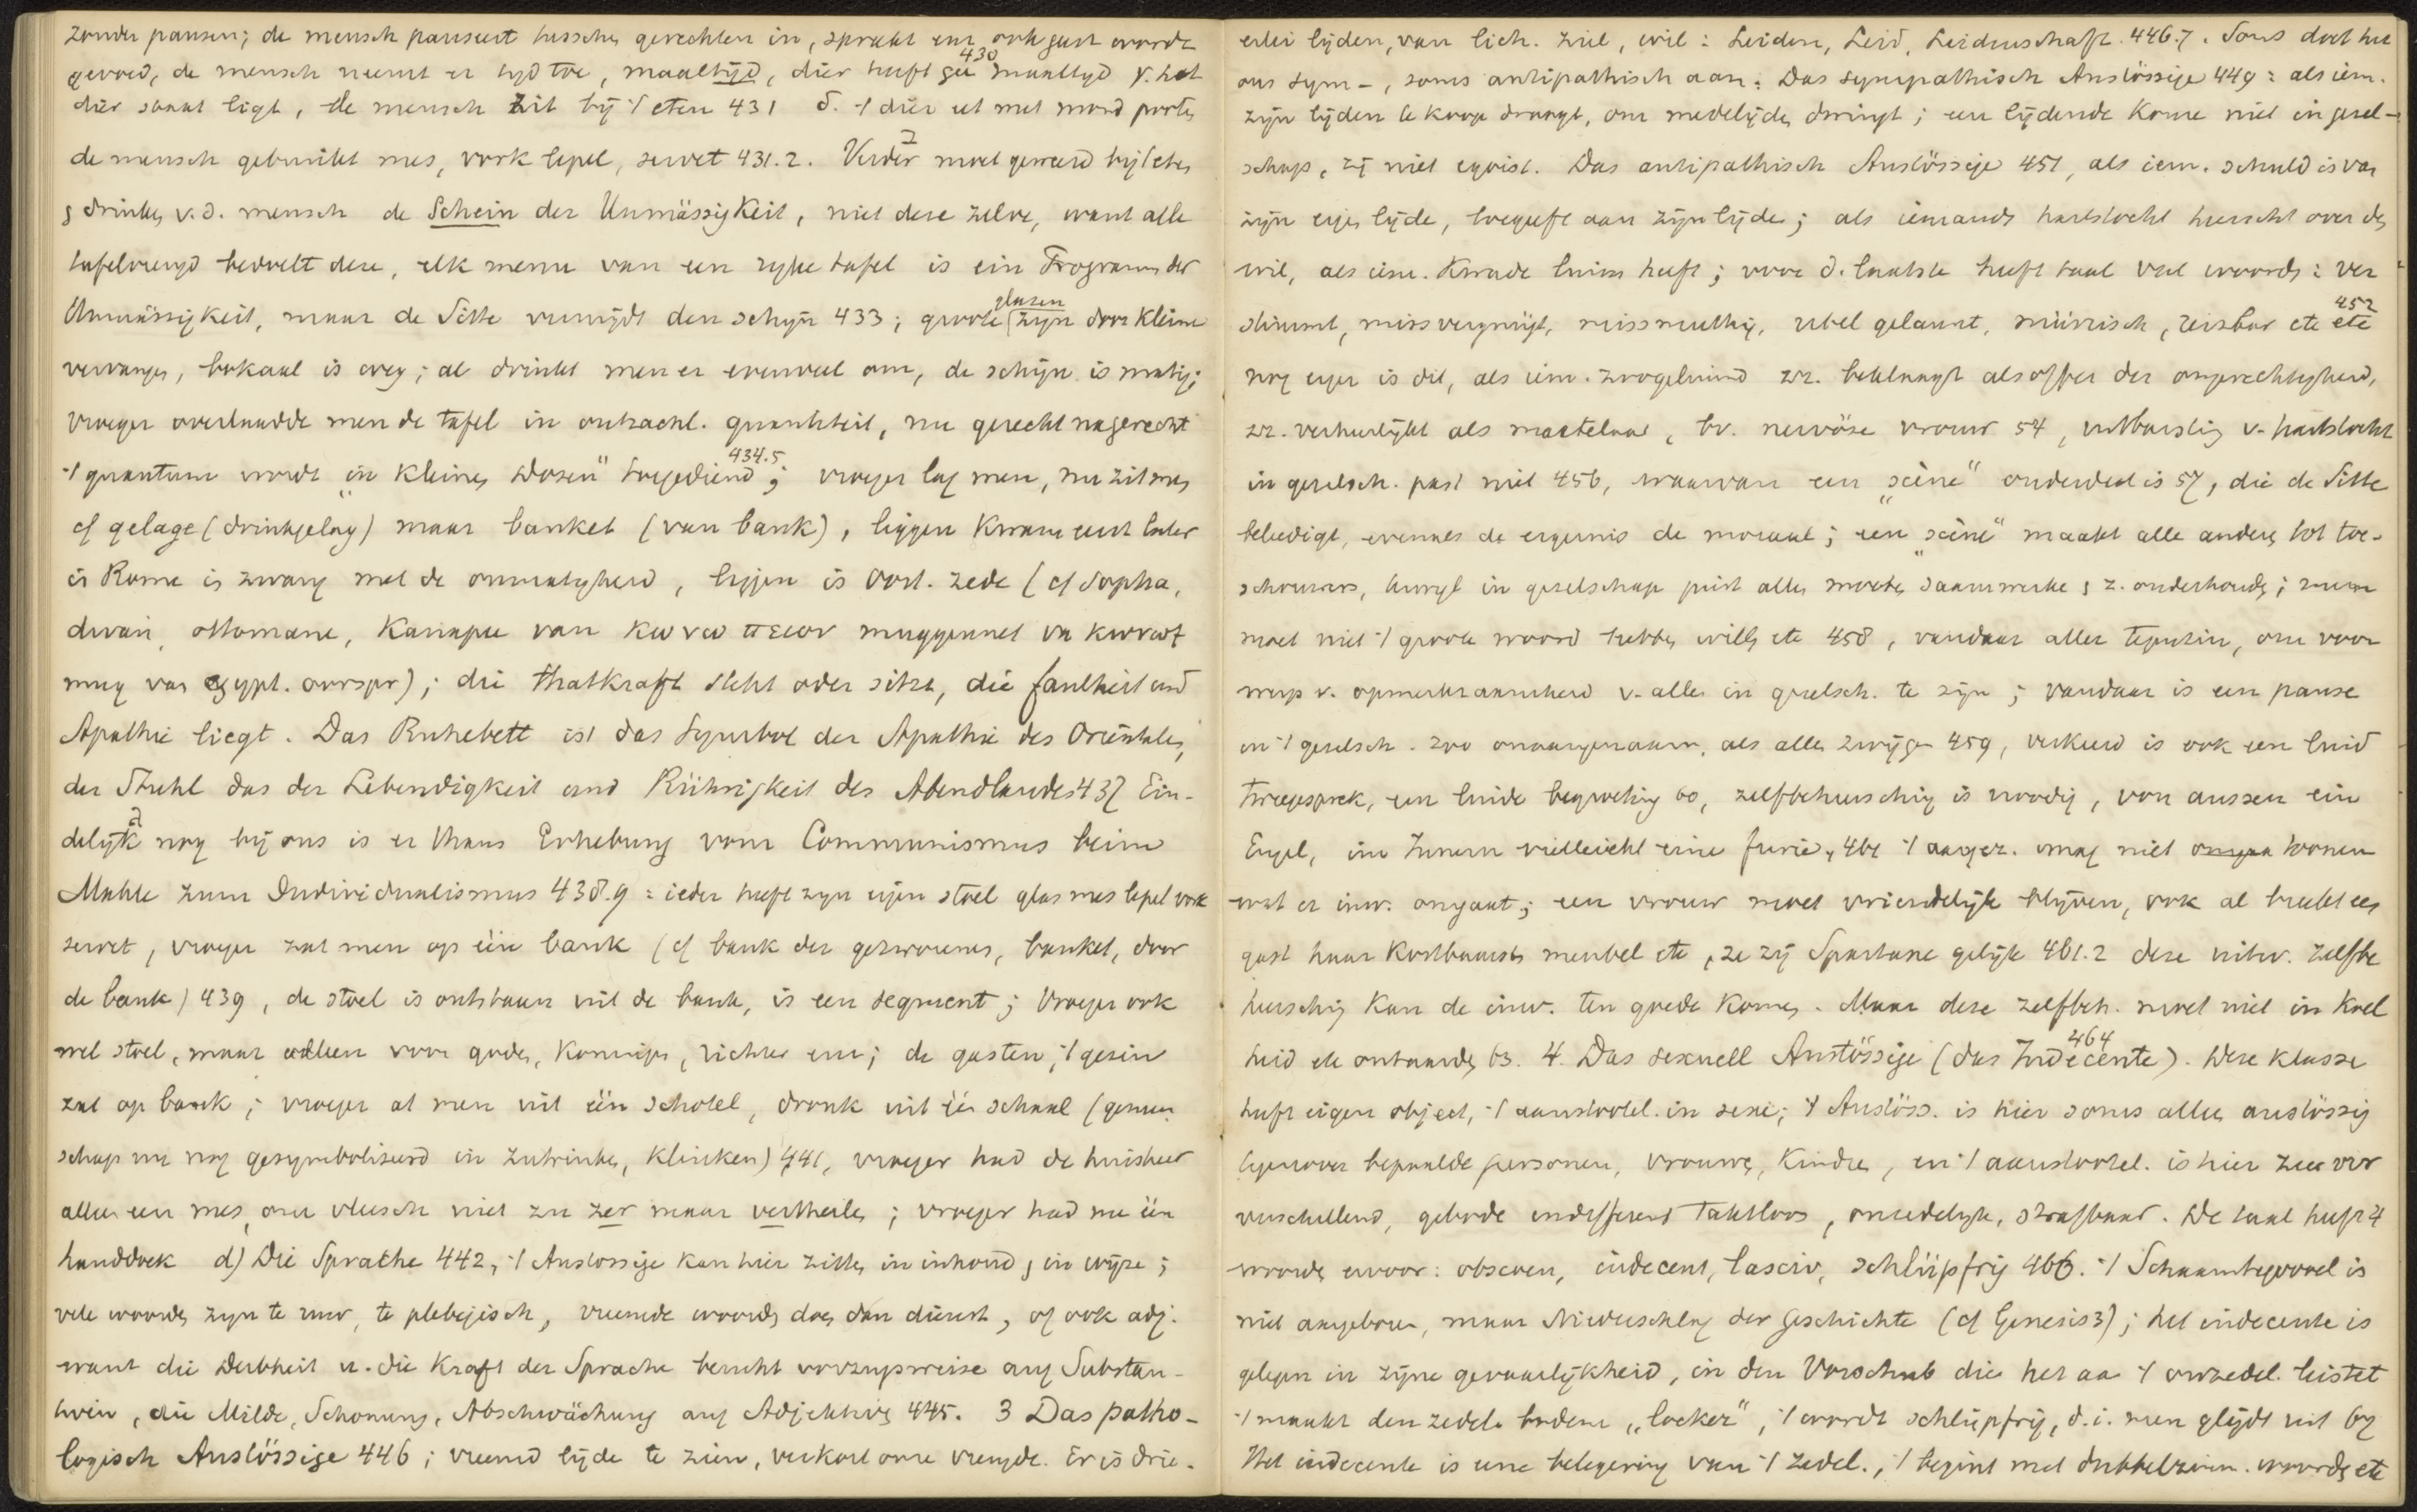 zonder pausen; de mensch pauseert tusschen gerechten in, spreekt enz, ook gast wordt
430
gevoed, de mensch neemt er tyd toe, maaltijd, dier heeft gee maaltyd γ. het
dier staat ligt, de mensch zit bij 't eten 431 δ. 't dier eet met mond poote
de mensch gebruikt mes, vork lepel, servet 431.2. Verder moet geweerd bij 't eten
drinken v.d. mensch de Schein der Unmässigkeit, niet deze zelve, want alle
tafelvreugd bedoelt deze, elk menu van een ryke tafel is ein Programm der
Unmässigkeit, maar de Sitte vermijdt den schijn 433; groote glazen zijn door kleine
vervangen, bokaal is weg; al drinkt men er evenveel om, de schijn is matig;
vroeger overlaadde men de tafel in ontzachl. quantiteit, nu gerecht na gerecht
434.5
't quantum wordt "in kleinen Dosen" toegediend; vroeger lag men, nu zit men
cf gelage (drinkgelag) maar banket (van bank), liggen kwam eerst later
in Rome in zwang met de onmatigheid, liggen is Oost. zede (cf Sopha,
divan, ottomane, Kanapee van κωνωπειον muggennet van κωνωψ
mug van egypt. oorspr); die Thatkraft steht oder sitzt, die Faulheit und
Apathie liegt. Das Ruhebett ist das Symbol der Apathie des Orientalen,
der Stuhl das der Lebendigkeit und Rührigkeit des Abendlandes 437 Ein-
delijk nog bij ons is er thans Erhebung vom Communismus beim
Mahle zum Individualismus 438.9: ieder heeft zyn eigen stoel glas mes lepel vork
servet, vroeger zat men op één bank (cf bank der gezworenen, banket, door
de bank) 439, de stoel is ontstaan uit de bank, is een segment; vroeger ook
wel stoel, maar alleen voor goden, Koningen, richter enz; de gasten, 't gezin
zat op bank; vroeger at men uit één schotel, dronk uit één schaal (gemeen
schap nu nog gesymboliseerd in zutrinken, klinken) 441, vroeger had de huisheer
alleen een mes, om vleesch niet zu zer maar vertheilen; vroeger had men één
handdoek d) Die Sprache 442, 't Anstössige kan hier zitten in inhoud, in wijze;
vele woorden zyn te ruw, te plebejisch, vreemde woorden doen dan dienst, of ook adj.
want die Derbheit u. die Kraft der Sprache beruht vorzugsweise auf Substan-
tiven, die Milde, Schonung, Abschwächung auf Adjektiven 445. 3 Das patho-
logisch Anstössige 446; vreemd lijden te zien, verkort onze vreugde. Er is drie-
erlei lijden, van lich. ziel, wil: Leiden, Leid, Leidenschaft. 446.7. Soms doet het
ons sym-, soms antipathisch aan: Das sympathisch Anstössige 449: als iem.
zijn lijden te koop draagt, om medelijden dwingt; een lijdende kome niet in gesel-
schap, zij niet egoist. Das antipathisch Anstössige 451, als iem. schuld is van
zijn eigen lijden, toegeeft aan zijn lijden; als iemands hartstocht heerscht over den
wil, als iem. kwade luim heeft; voor d. laatste heeft taal veel woorden: ver
452
stimmt, missvergnügt, missmuthig, übel gelaunt, mürrisch, reizbar etc etc
nog erger is dit, als iem. zwoegelmind zr. beklaagt als offer der ongerechtigheid,
zr. verheerlijkt als martelaar, bv. nervöse vrouw 54, uitbarsting v. hartstocht
in geselsch. past niet 456, waarvan een "scène" onderdeel is 57, die de Sitte
beleedigt, evenals de ergernis de moraal; een "scène" maakt alle anderen tot toe-
schouwers, terwijl in gezelschap juist allen moeten saamwerken z. onderhouden; men
moet niet 't groote woord hebben willen etc 458, vandaar aller, om voor
werp v. opmerkzaamheid v. allen in geselsch. te zijn; vandaar is een pause
in 't geselsch. zoo onaangenaam, als allen zwijgen 459, verkeerd is ook een luid
tweegesprek, een luide begroeting 60, zelfbeheersching is noodig, von aussen ein
Engel, im Innern vielleicht eine Furie, 461 't aangez. mag niet toonen
wat er inw. omgaat; een vrouw moet vriendelijk blijven, ook al breekt een
gast haar kostbaarste meubel etc, ze zij Spartane gelijk 461.2 deze uitw. zelfbe
heersching kan de inw. ten goede komen. Maar deze zelfbeh. moet niet in koel
464
heid etc ontaarden 63. 4. Das sexuell Anstössige (das Indecente). Deze klasse
heeft eigen object, 't aanstootel. in sexu; 't Anstöss. is hier soms alleen anstössig
tegenover bepaalde personen, vrouwen, kinderen, en 't aanstootel. is hier zeer ver
verschillend, geboden indifferent Taktloos, onzedelijk, strafbaar. De taal heeft 4
woorden ervoor: obscoen, indecent, lasciv, schlüpfrig 466. 't Schaamtegevoel is
niet aangeboren, maar Niederschlag der Geschichte (cf Genesis 3); het indecente is
gelegen in zijne gevaarlijkheid, in den Vorschub die het aan 't onzedel. leistet
't maakt den zedel. bodem "locker", 't wordt schlüpfrig, d.i. men glijdt uit 67
Het indecente is eene belegering van 't zedel., 't begint met dubbelzinn. woorden etc